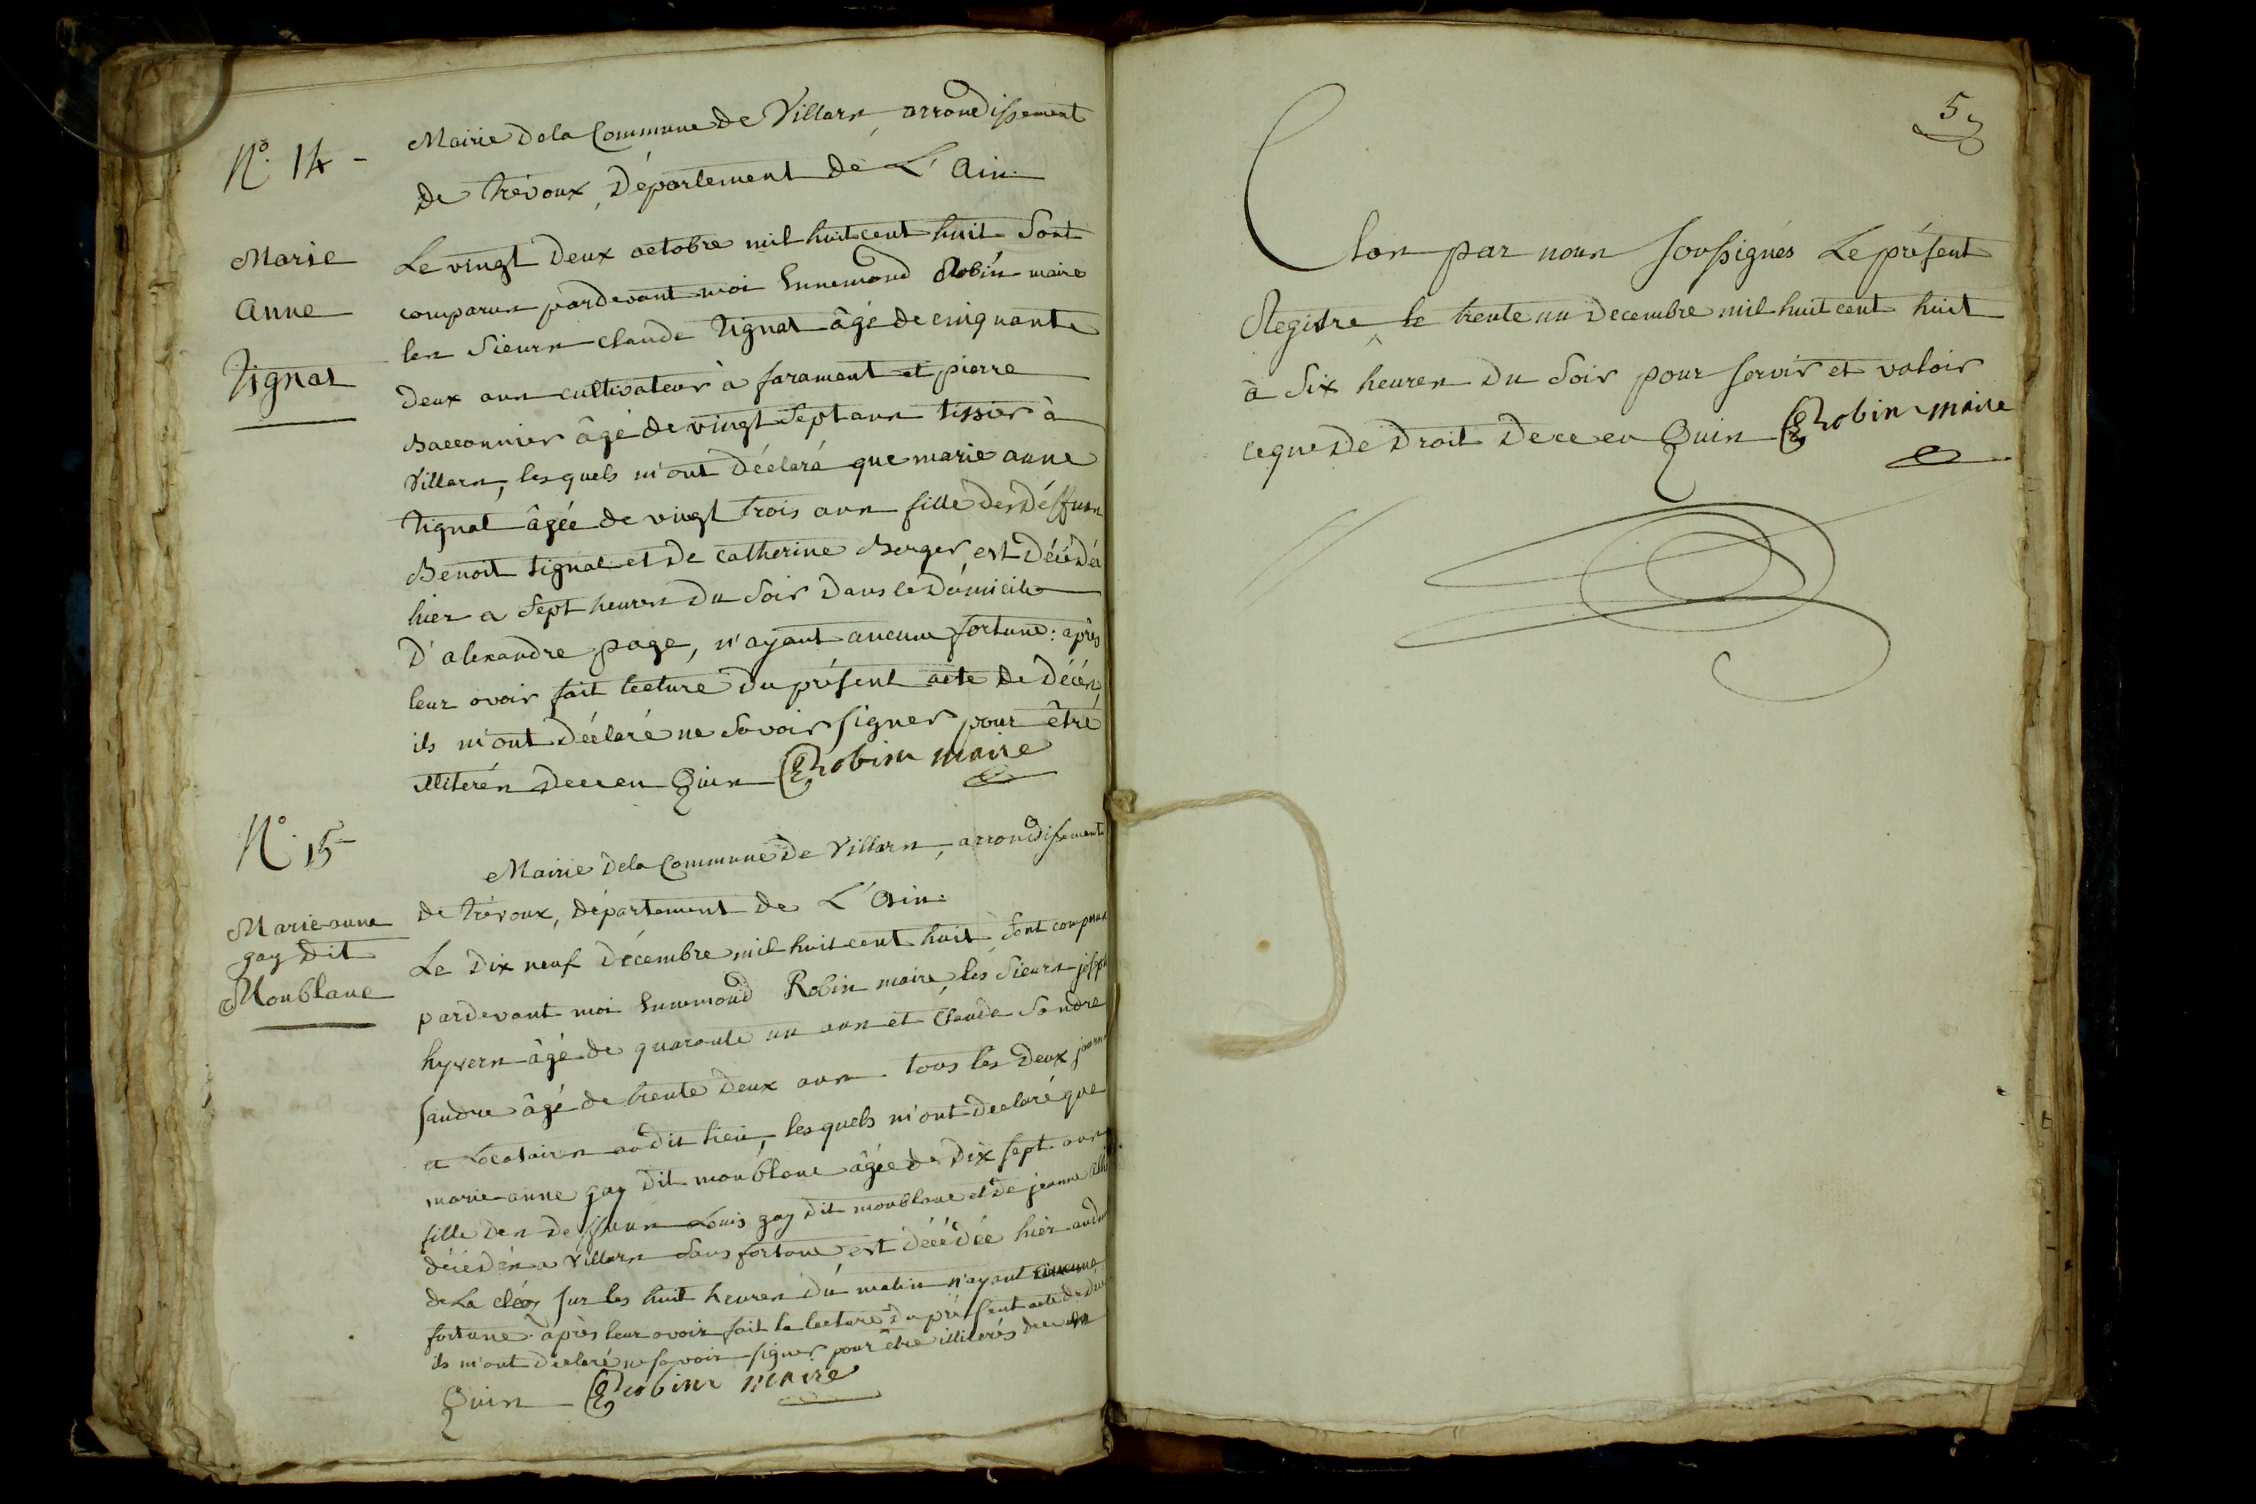 N.º 14 -
Marie
Anne
Tignat
Mairie de la Commune de Villars, arrondissement
de trévoux, Département de L'Ain.
Le vingt Deux octobre mil huit cent huit Sont
comparus pardevant moi Ennemond Robin maire
les Sieurs Claude Tignat âgé de cinquante
Deux ans cultivateur à farament et pierre
Baconnier âgé de vingt Sept ans tissier à
Villars, lesquels m'ont Déclaré que marie anne
Tignat âgée de vingt trois ans fille des Déffuns
Benoit tignat et De Catherine Berger, est Décédée
hier a Sept heures Du Soir Dans le Domicile
D'alexandre page, n'ayant aucune fortune: après
leur avoir fait lecture Du présent acte de Décès,
ils m'ont Déclaré ne Savoir signer pour être
illiterés De ce en Quis ERobin maire
N.º 15
Marie anne
gay Dit
Monblanc
Mairie Dela Commune De Villars, arrondissement
de trévoux, Département de L'Ain.
Le Dix neuf Décembre mil huit cent huit, Sont comparus
pardevant moi Ennemond Robin maire, les Sieurs joseph
hyvers âgé de quarante un ans et Claude Sandre
Sandre âgé de trente Deux ans tous les Deux
et Locataires audit lieu, lesquels m'ont declaré que
marie anne gay Dit monblanc âgée de Dix sept ans
fille Des Deffuns Louis gay Dit monblanc et De jeanne
décédés a Villars Sans fortune est Décédée hier
de La sur les huit heures Du matin n'ayant aucune
fortune. après leur avoir fait la lecture Du présent acte de
ils m'ont Declaré ne savoir signer pour être illiterés de ce en
Quis ERobin maire
5
Clos par nous soussignés Le présent
Registre le trente un Decembre mil huit cent huit
à Six heures Du Soir pour servir et valoir
ce que De Droit De ce en Quis ERobin maire